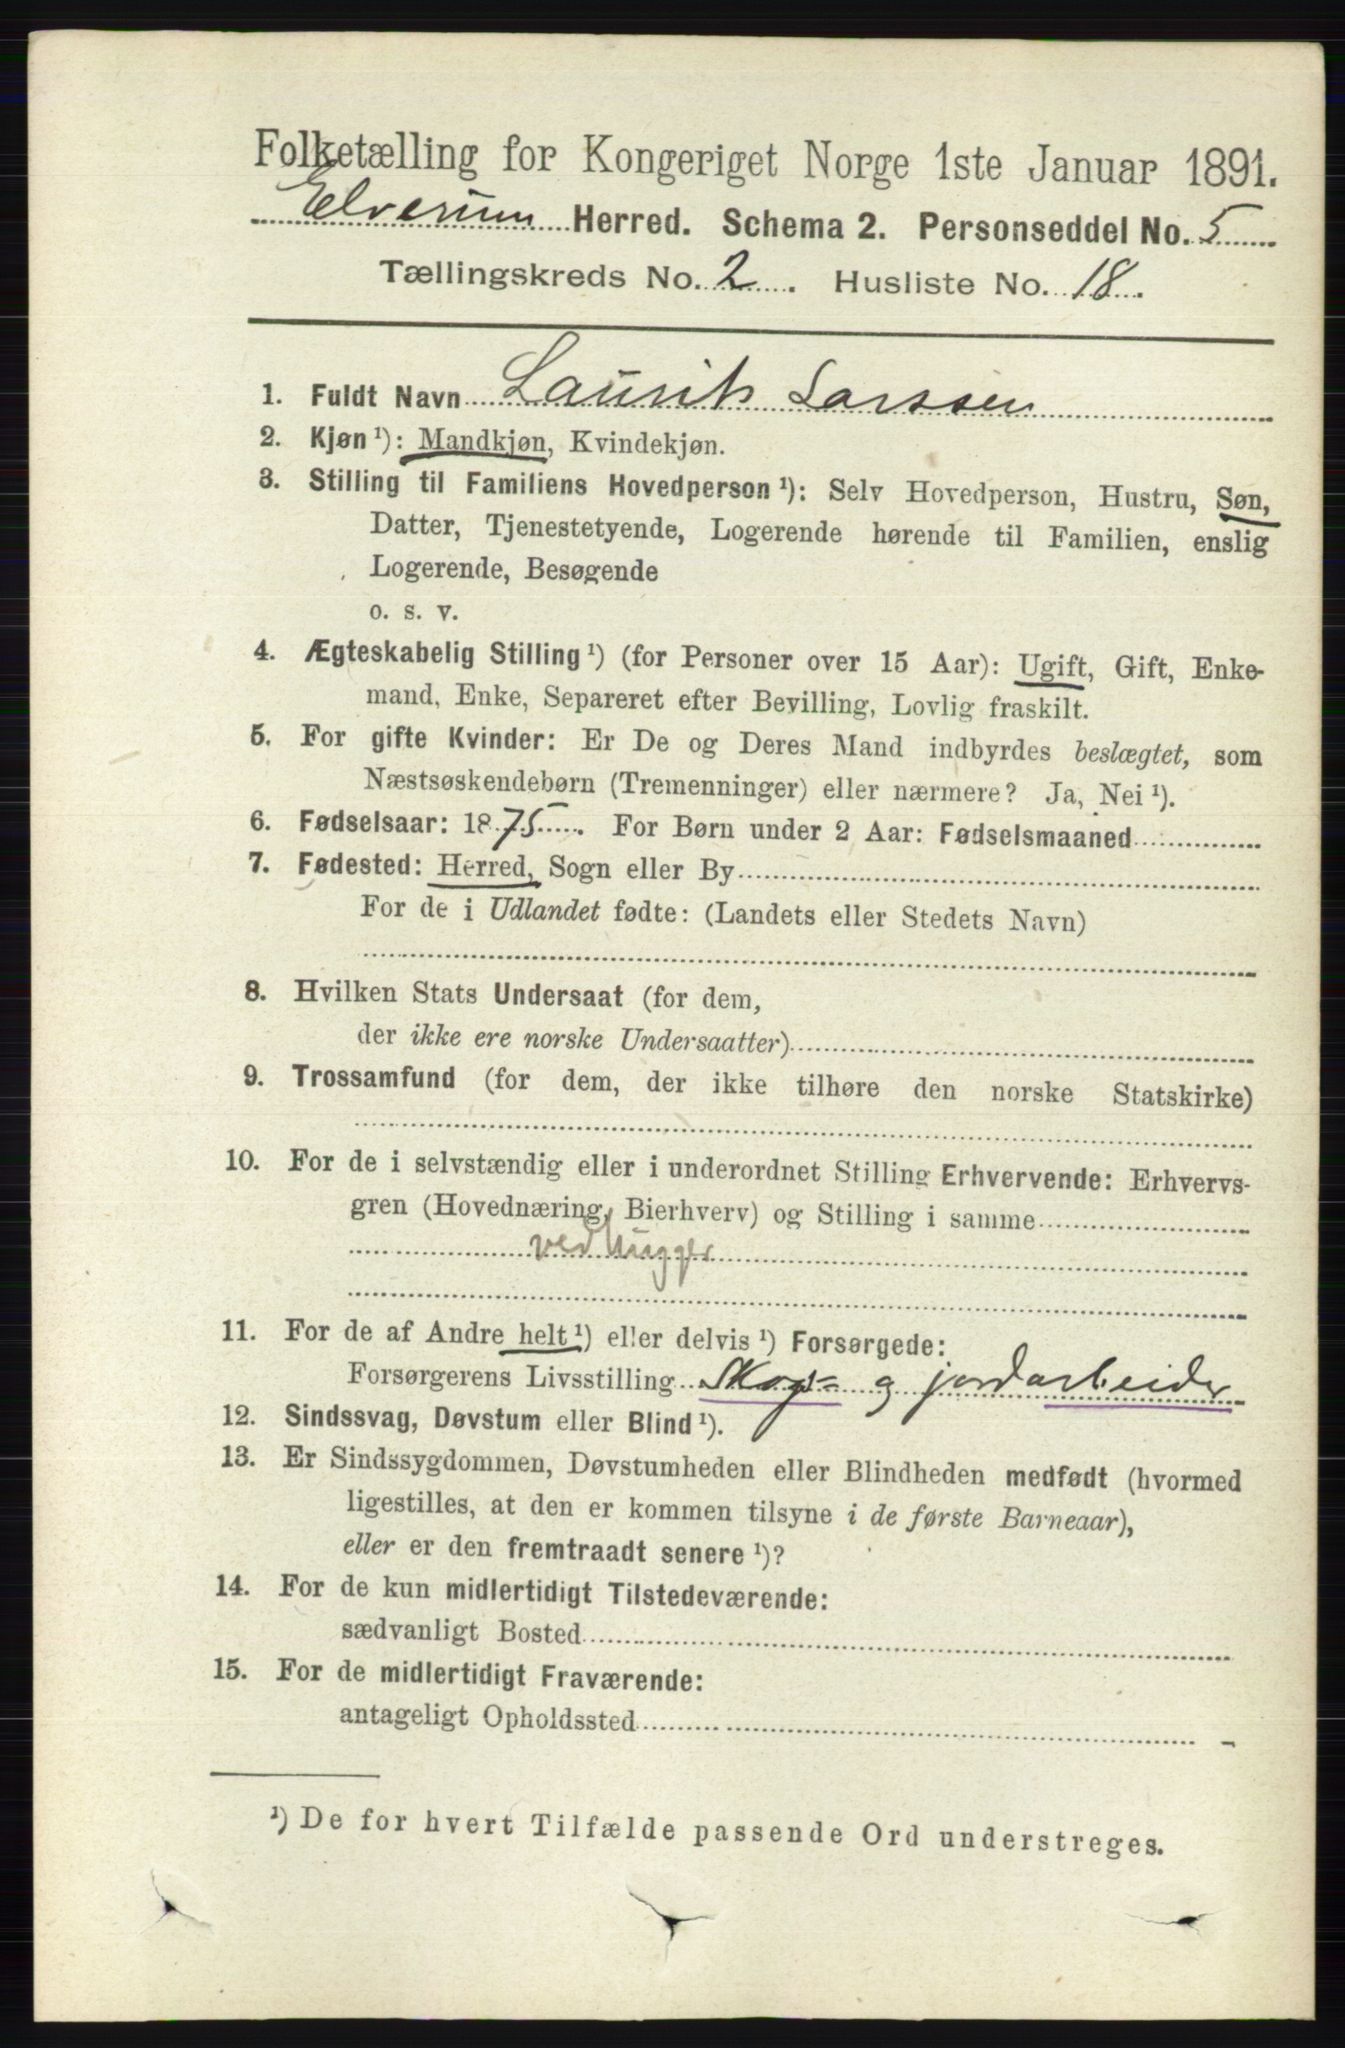 Folketælling for Kongeriget Norge 1ste Januar 1891.
Elverum Herred. Schema 2. Personseddel No. 5
Tællingskreds No. 2. Husliste No. 18.
1. Fuldt Navn Laurits Larssen
2. Kjøn ¹): Mandkjøn, Kvindekjøn.
3. Stilling til Familiens Hovedperson ¹): Selv Hovedperson, Hustru, Søn,
Datter, Tjenestetyende, Logerende hørende til Familien, enslig
Logerende, Besøgende
o. s. v.
4. Ægteskabelig Stilling ¹) (for Personer over 15 Aar): Ugift, Gift, Enke-
mand, Enke, Separeret efter Bevilling, Lovlig fraskilt.
5. For gifte Kvinder: Er De og Deres Mand indbyrdes beslægtet, som
Næstsøskendebørn (Tremenninger) eller nærmere? Ja, Nei ¹).
6. Fødselsaar: 1875. For Børn under 2 Aar: Fødselsmaaned
7. Fødested: Herred, Sogn eller By
For de i Udlandet fødte: (Landets eller Stedets Navn)
8. Hvilken Stats Undersaat (for dem,
der ikke ere norske Undersaatter)
9. Trossamfund (for dem, der ikke tilhøre den norske Statskirke)
10. For de i selvstændig eller i underordnet Stilling Erhvervende: Erhvervs-
gren (Hovednæring, Bierhverv) og Stilling i samme
vedhugger
11. For de af Andre helt ¹) eller delvis ¹) Forsørgede:
Forsørgerens Livsstilling Skogs= og jordarbeider
12. Sindssvag, Døvstum eller Blind ¹).
13. Er Sindssygdommen, Døvstumheden eller Blindheden medfødt (hvormed
ligestilles, at den er kommen tilsyne i de første Barneaar),
eller er den fremtraadt senere ¹)?
14. For de kun midlertidigt Tilstedeværende:
sædvanligt Bosted
15. For de midlertidigt Fraværende:
antageligt Opholdssted
¹) De for hvert Tilfælde passende Ord understreges.